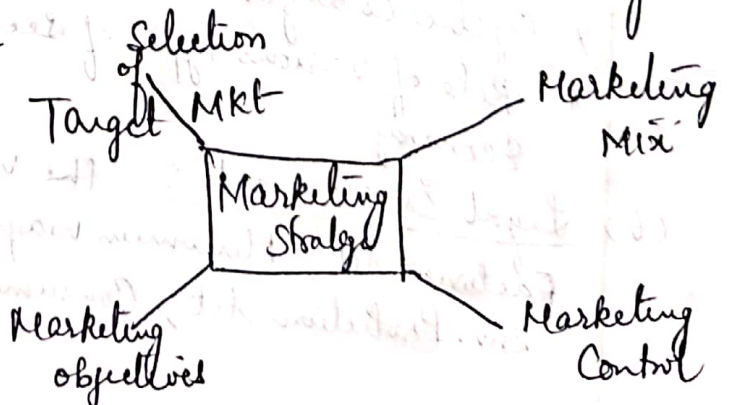 Selection
of
Target Mkt
Marketing
Mix
Marketing
Strategy
Marketing
objectives
Marketing
Control